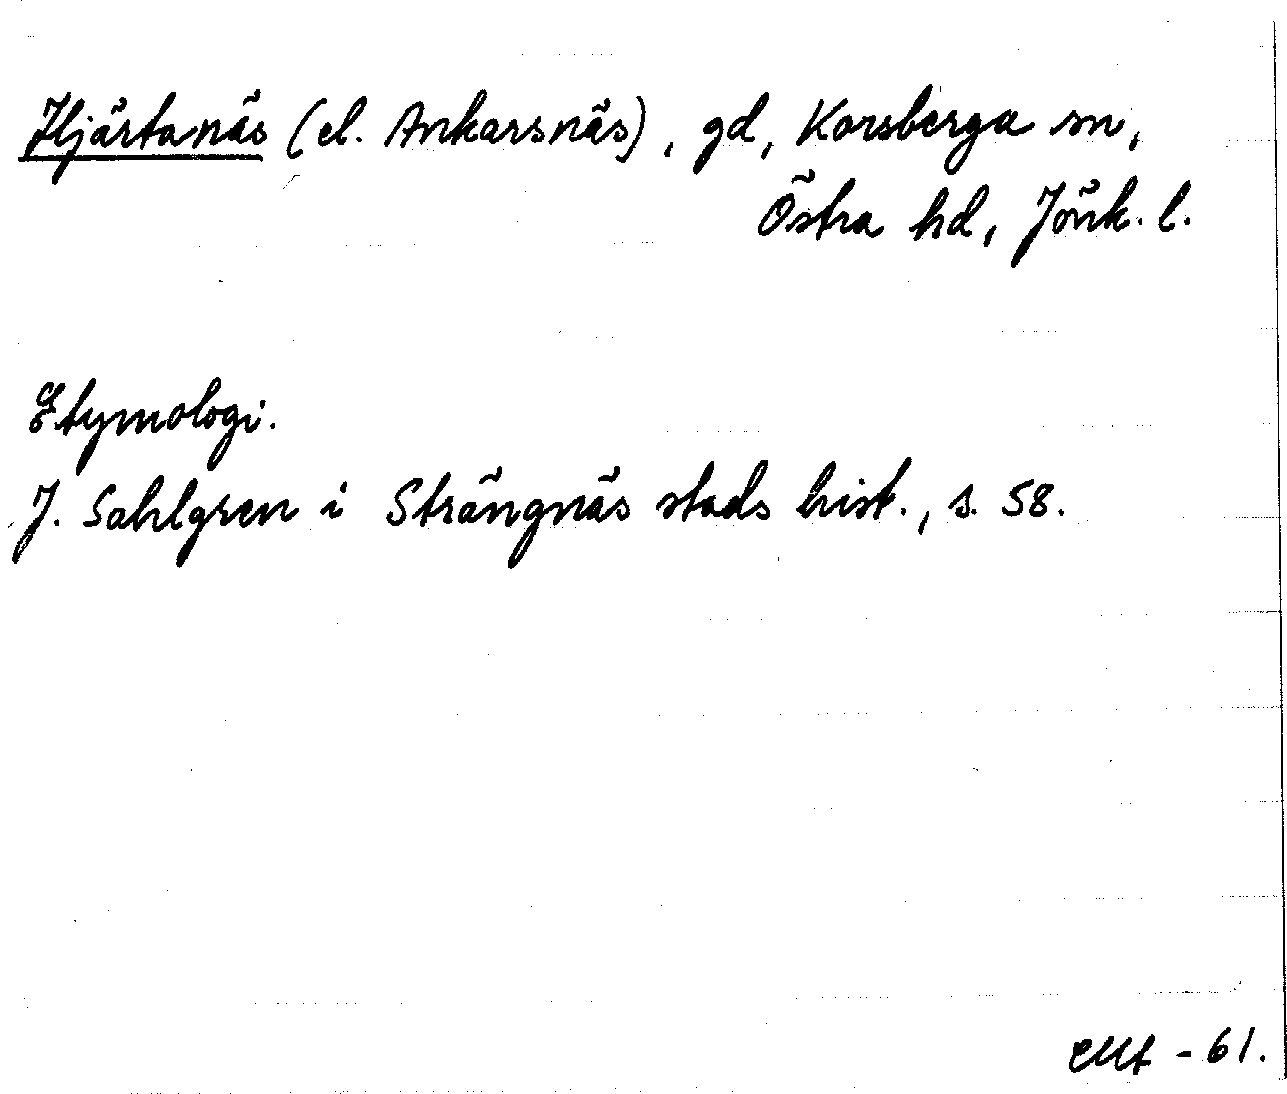 Hjärtanäs (el. Ankarsnäs), gd, Korsberga sn,
Östra hd, Jönk. l.
Etymologi.
J. Sahlgren i Strängnäs stads hist., s. 58.
-61.